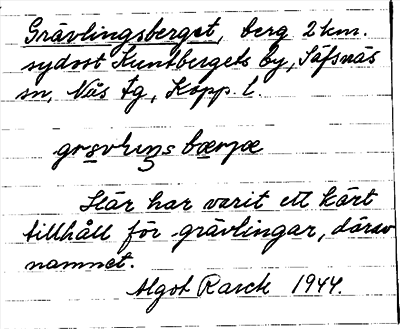 Grävlingsberget, berg 2 km.
sydost Kuntbergets by, Säfsnäs
sn, Nås tg, Kopp. l.
Här har varit ett kärt
tillhåll för grävlingar, därav
namnet.
Algot Rarck 1944.